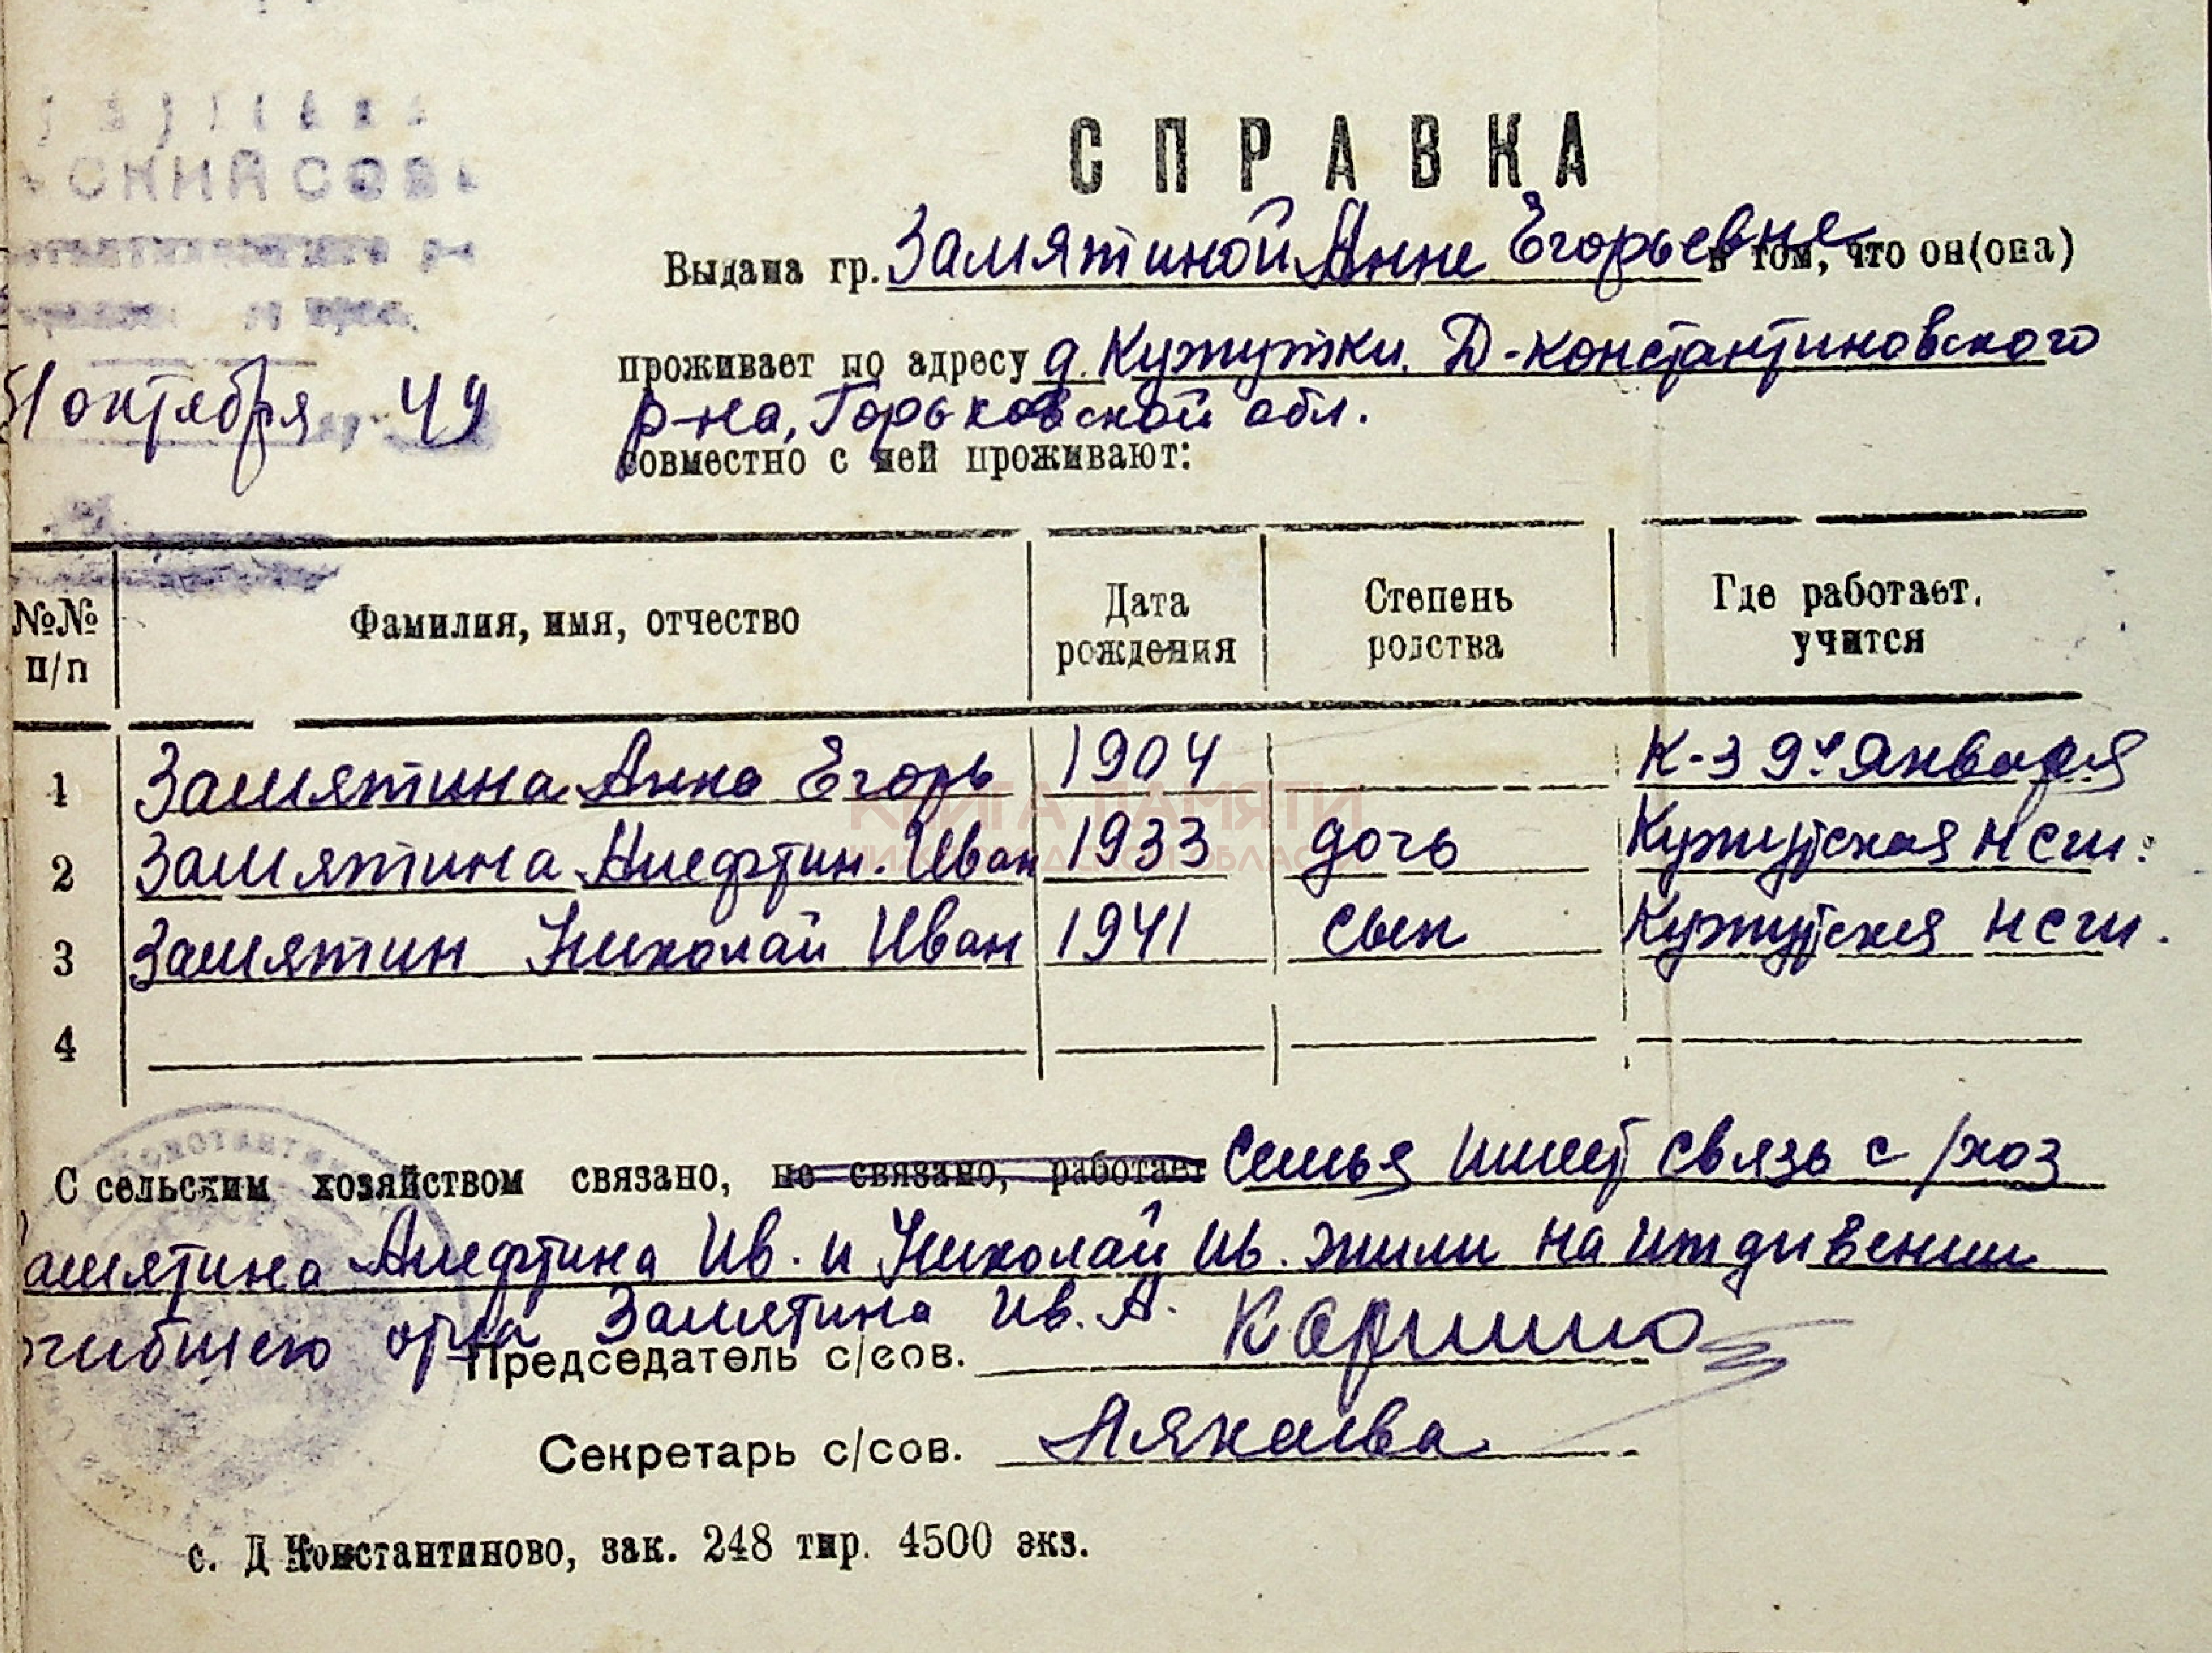 СКИЙ СОВЕ
СПРАВКА
Выдана гр. Замятиной Анне Егорьевне в том, что он(она)
проживает по адресу д. Кужутки. Д-константиновского
31 октября 49
р-на, Горьковской обл.
совместно с ней проживают:
№№ п/п Фамилия, имя, отчество Дата рождения Степень родства Где работает, учится
1 Замятина Анна Егорь 1904 К-з 9е Января
2 Замятина Алефтин. Иван 1933 дочь Кужутская нсш.
3 Замятин Николай Иван 1941 сын Кужутская нсш.
4
КНИГА ПАМЯТИ
НИЖЕГОРОДСКОЙ ОБЛАСТИ
С сельским хозяйством связано, не связано, работает Семья имеет связь с/хоз
Замятина Алефтина Ив. и Николай Ив. жили на иждивении
погибшего отца Замятина Ив. А.
Председатель с/сов.
Секретарь с/сов.
с. Д Константиново, зак. 248 тир. 4500 экз.